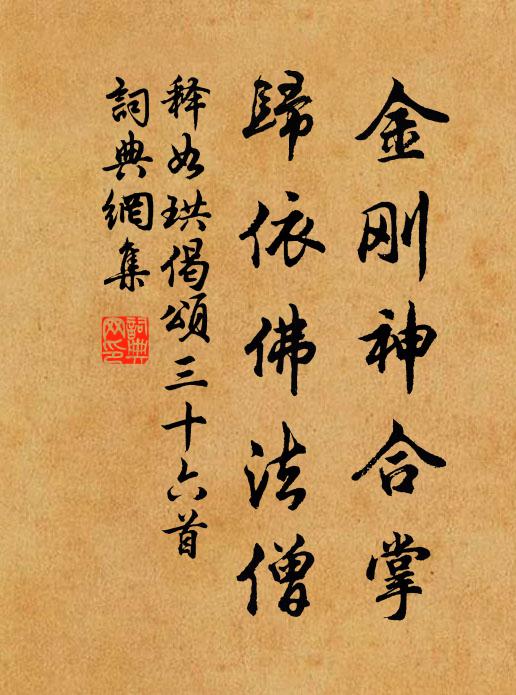 金刚神合掌
歸依佛法僧
释如珙偈頌三十六首
詞典網集
詞典網印